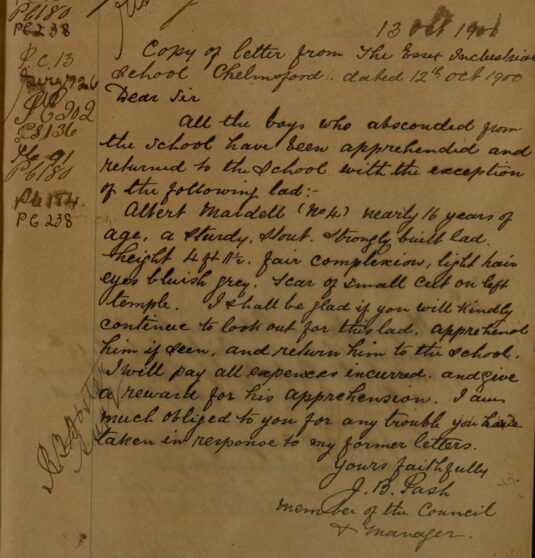 PC 180
PC 238
P.C. 13
PC 202
PC 180
PC 184
PC 238
13 Oct 1900
Copy of letter from The Essex Industrial
School Chelmsford.. dated 12th Oct 1900
Dear Sir
All the boys who absconded from
the School have been apprehended and
returned to the School with the exception
of the following lad:-
Albert Mardell (No 4) nearly 16 years of
age, a sturdy, stout, strongly built lad.
height 4 ft 11½. fair complexion, light hair
eyes bluish grey. Scar of small cut on left
temple. I shall be glad if you will kindly
continue to look out for this lad, apprehend
him if seen, and return him to the School.
I will pay all expences incurred. and give
a reward for his apprehension. I am
much obliged to you for any trouble you have
taken in response to my former letters.
Yours faithfully
J. B. Pash
Member of the Council
& Manager.